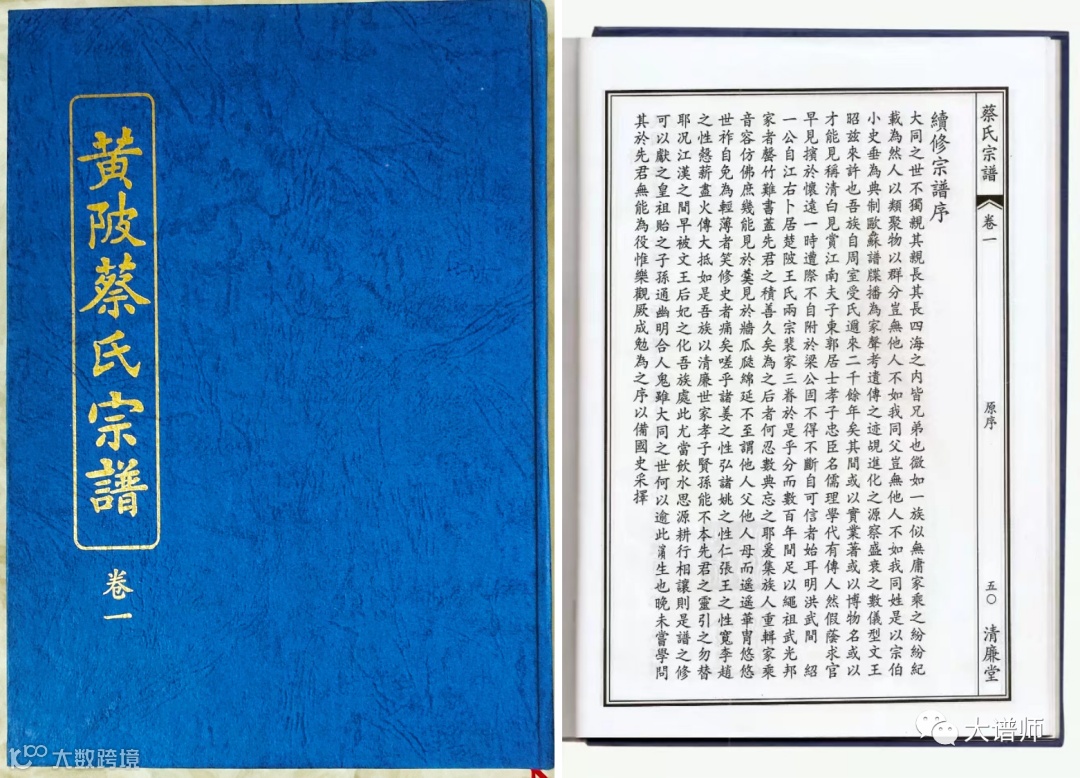 黄陂蔡氏宗譜
卷一
大数跨境
蔡氏宗譜
卷一
原序
五〇
清廉堂
續修宗譜序
大同之世不獨親其親長其長四海之内皆兄弟也微如一族似無庸家乘之紛紛紀
載為然人以類聚物以群分豈無他人不如我同父豈無他人不如我同姓是以宗伯
小史垂為典制歐蘇譜牒播為家聲考遺傳之迹覘進化之源察盛衰之數儀型文王
昭兹來許也吾族自周室受氏迴來二千餘年矣其間或以實業著或以博物名或以
才能見稱清白見賞江南夫子東郭居士孝子忠臣名儒理學代有傳人然假蔭求官
早見擯於懷遠一時遭際不自附於梁公固不得不斷自可信者始耳明洪武間 紹
一公自江右卜居楚陂王氏兩宗裴家三眷於是乎分而數百年間足以繩祖武光邦
家者罄竹難書蓋先君之積善久矣為之后者何忍數典忘之耶爰集族人重輯家乘
音容仿佛庶幾能見於羹見於牆瓜瓞綿延不至謂他人父他人母而遥遥華胄悠悠
世祚自免為輕薄者笑修史者痛矣嗟乎諸姜之性弘諸姚之性仁張王之性寬李趙
之性慤薪盡火傳大抵如是吾族以清廉世家孝子賢孫能不本先君之靈引之勿替
耶况江漢之間早被文王后妃之化吾族處此尤當飲水思源耕行相讓則是譜之修
可以獻之皇祖貽之子孫通幽明合人鬼雖大同之世何以逾此濱生也晚未嘗學問
其於先君無能為役惟樂觀厥成勉為之序以備國史采擇
大谱师